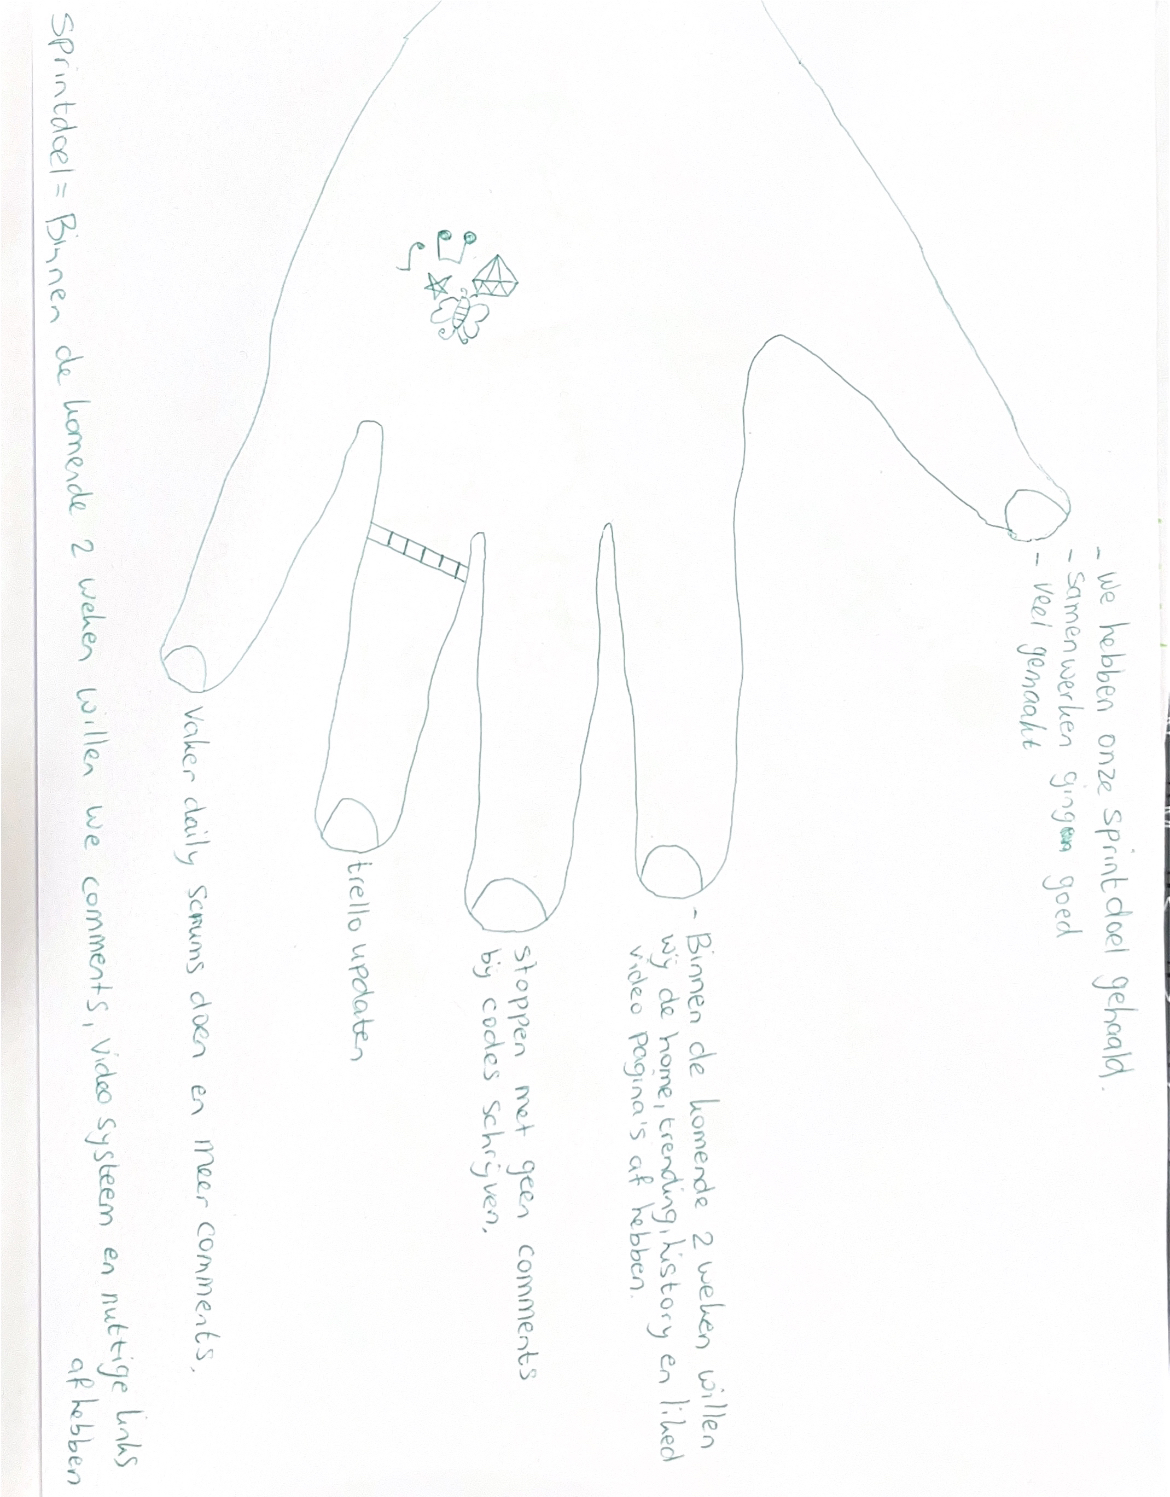 - We hebben onze sprintdoel gehaald.
- samenwerken gingen goed
- veel gemaakt
- Binnen de komende 2 weken willen
wij de home, trending, history en liked
video pagina's af hebben.
stoppen met geen comments
bij codes schrijven.
trello updaten
vaker daily scrums doen en meer comments.
Sprintdoel = Binnen de komende 2 weken willen we comments, video systeem en nuttige links
af hebben